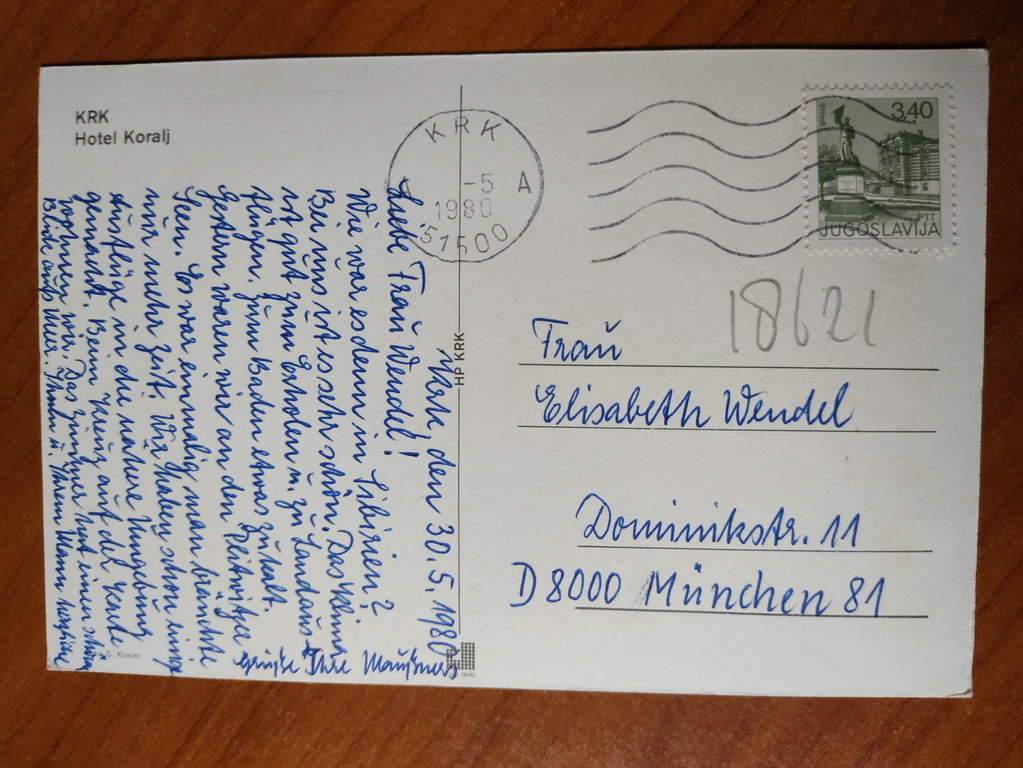 KRK
Hotel Koralj
KRK
-5
1980
A
51500
3,40
PTT
JUGOSLAVIJA
HP KRK
18621
Frau
Elisabeth Wendel
Dominikstr. 11
D 8000 München 81
Krk, den 30.5.1980
Liebe Frau Wendel!
Wie war es denn in Sibirien?
Bei uns ist es sehr schön. Das Klima
ist gut zum Erholen u. zu Landaus-
flügen. Zum Baden etwas zu kalt.
Gestern waren wir an den Plitvitze
Seen. Es war einmalig, man bräuchte
nur mehr Zeit. Wir haben schon einige
Ausflüge in die nähere Umgebung
gemacht. Beim Kreuz auf der Karte
wohnen wir. Das Zimmer hat einen schönen
Blick aufs Meer. Ihnen u. Ihrem Mann herzliche
Grüße Ihre
S. Kosier
delo